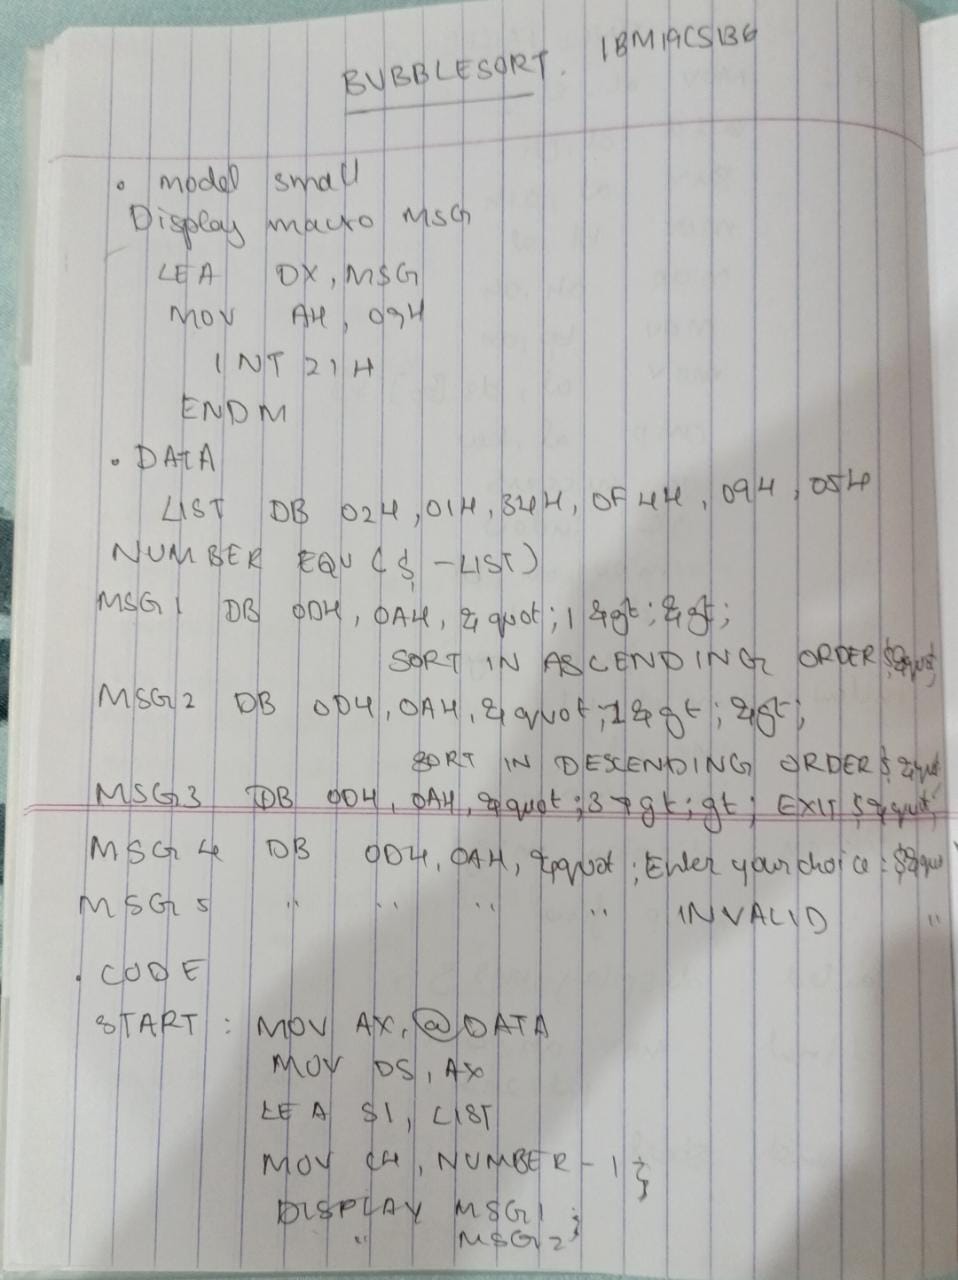 BUBBLESORT. 1BM19CS136
. model small
Display macro MSG
LEA DX, MSG
MOV AH, 09H
INT 21H
ENDM
. DATA
LIST DB 02H, 01H, 34H, 0F4H, 09H, 05H
NUMBER EQU ($ - LIST)
MSG1 DB 0DH, 0AH, &quot; 1 &gt; &gt;
SORT IN ASCENDING ORDER $&quot;
MSG2 DB 0DH, 0AH, &quot; 2 &gt; &gt;
SORT IN DESCENDING ORDER $ &quot
MSG3 DB 0DH, 0AH, &quot; 3 &gt; gt; EXIT $ &quot;
MSG4 DB 0DH, 0AH, &quot; Enter your choice : $&quo
MSG5 " " " " INVALID "
. CODE
START : MOV AX, @DATA
MOV DS, AX
LEA SI, LIST
MOV CH, NUMBER - 1 ;
DISPLAY MSG1 ;
" MSG2